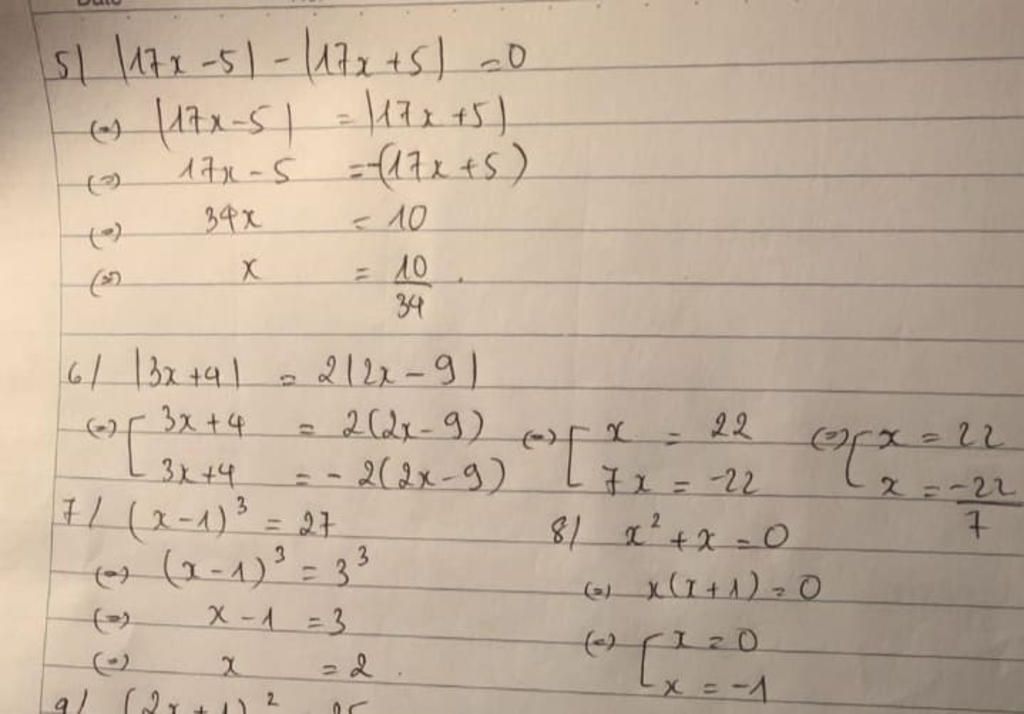 5) |17x - 5| - |17x + 5| = 0
(=) |17x - 5| = |17x + 5|
(=) 17x - 5 = -(17x + 5)
(=) 34x = 10
(=) x = 10/34 .
6/ |3x + 4| = 2|2x - 9|
(=) [ 3x + 4 = 2(2x - 9) (=) [ x = 22 (=) [ x = 22
3x + 4 = - 2(2x - 9) 7x = -22 x = -22/7
7/ (x - 1)³ = 27
(=) (x - 1)³ = 3³
(=) x - 1 = 3
(=) x = 2 .
8/ x² + x = 0
(=) x(x + 1) = 0
(=) [ x = 0
x = -1
9/ (2x + 1)² = 25